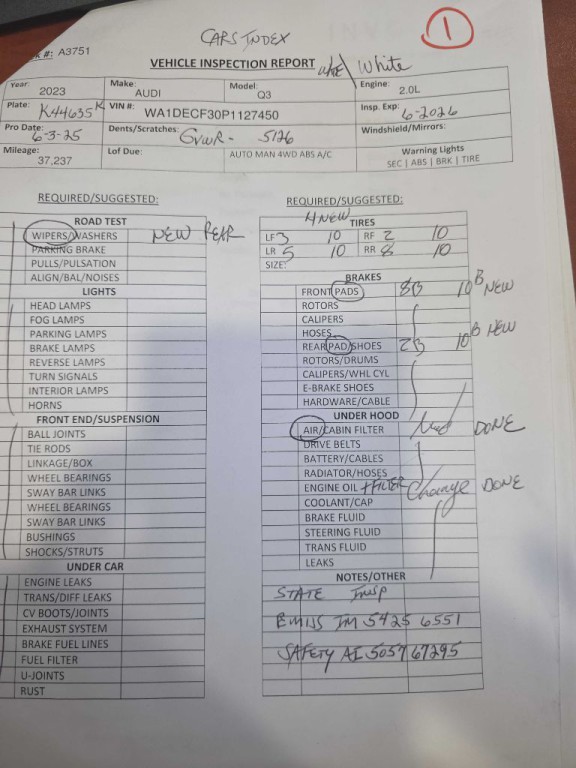 CARS INDEX
1
#: A3751
VEHICLE INSPECTION REPORT White
Year: 2023 Make: AUDI Model: Q3 Engine: 2.0L
Plate: K44635K VIN #: WA1DECF30P1127450 Insp. Exp: 6-2026
Pro Date: 6-3-25 Dents/Scratches: GVWR- 5126 Windshield/Mirrors:
Mileage: 37,237 Lof Due: AUTO MAN 4WD ABS A/C Warning Lights SEC | ABS | BRK | TIRE
REQUIRED/SUGGESTED:
ROAD TEST
WIPERS/WASHERS NEW REAR
PARKING BRAKE
PULLS/PULSATION
ALIGN/BAL/NOISES
LIGHTS
HEAD LAMPS
FOG LAMPS
PARKING LAMPS
BRAKE LAMPS
REVERSE LAMPS
TURN SIGNALS
INTERIOR LAMPS
HORNS
FRONT END/SUSPENSION
BALL JOINTS
TIE RODS
LINKAGE/BOX
WHEEL BEARINGS
SWAY BAR LINKS
WHEEL BEARINGS
SWAY BAR LINKS
BUSHINGS
SHOCKS/STRUTS
UNDER CAR
ENGINE LEAKS
TRANS/DIFF LEAKS
CV BOOTS/JOINTS
EXHAUST SYSTEM
BRAKE FUEL LINES
FUEL FILTER
U-JOINTS
RUST
REQUIRED/SUGGESTED:
4 NEW
TIRES
LF 3 10 RF 2 10
LR 5 10 RR 8 10
SIZE:
BRAKES
FRONT PADS 8B 10B NEW
ROTORS
CALIPERS
HOSES
REAR PAD/SHOES 2B 10B NEW
ROTORS/DRUMS
CALIPERS/WHL CYL
E-BRAKE SHOES
HARDWARE/CABLE
UNDER HOOD
AIR/CABIN FILTER Need DONE
DRIVE BELTS
BATTERY/CABLES
RADIATOR/HOSES
ENGINE OIL + FILTER Change DONE
COOLANT/CAP
BRAKE FLUID
STEERING FLUID
TRANS FLUID
LEAKS
NOTES/OTHER
STATE INSP
EMISS IM 5425 6551
SAFETY AI 5057 67295